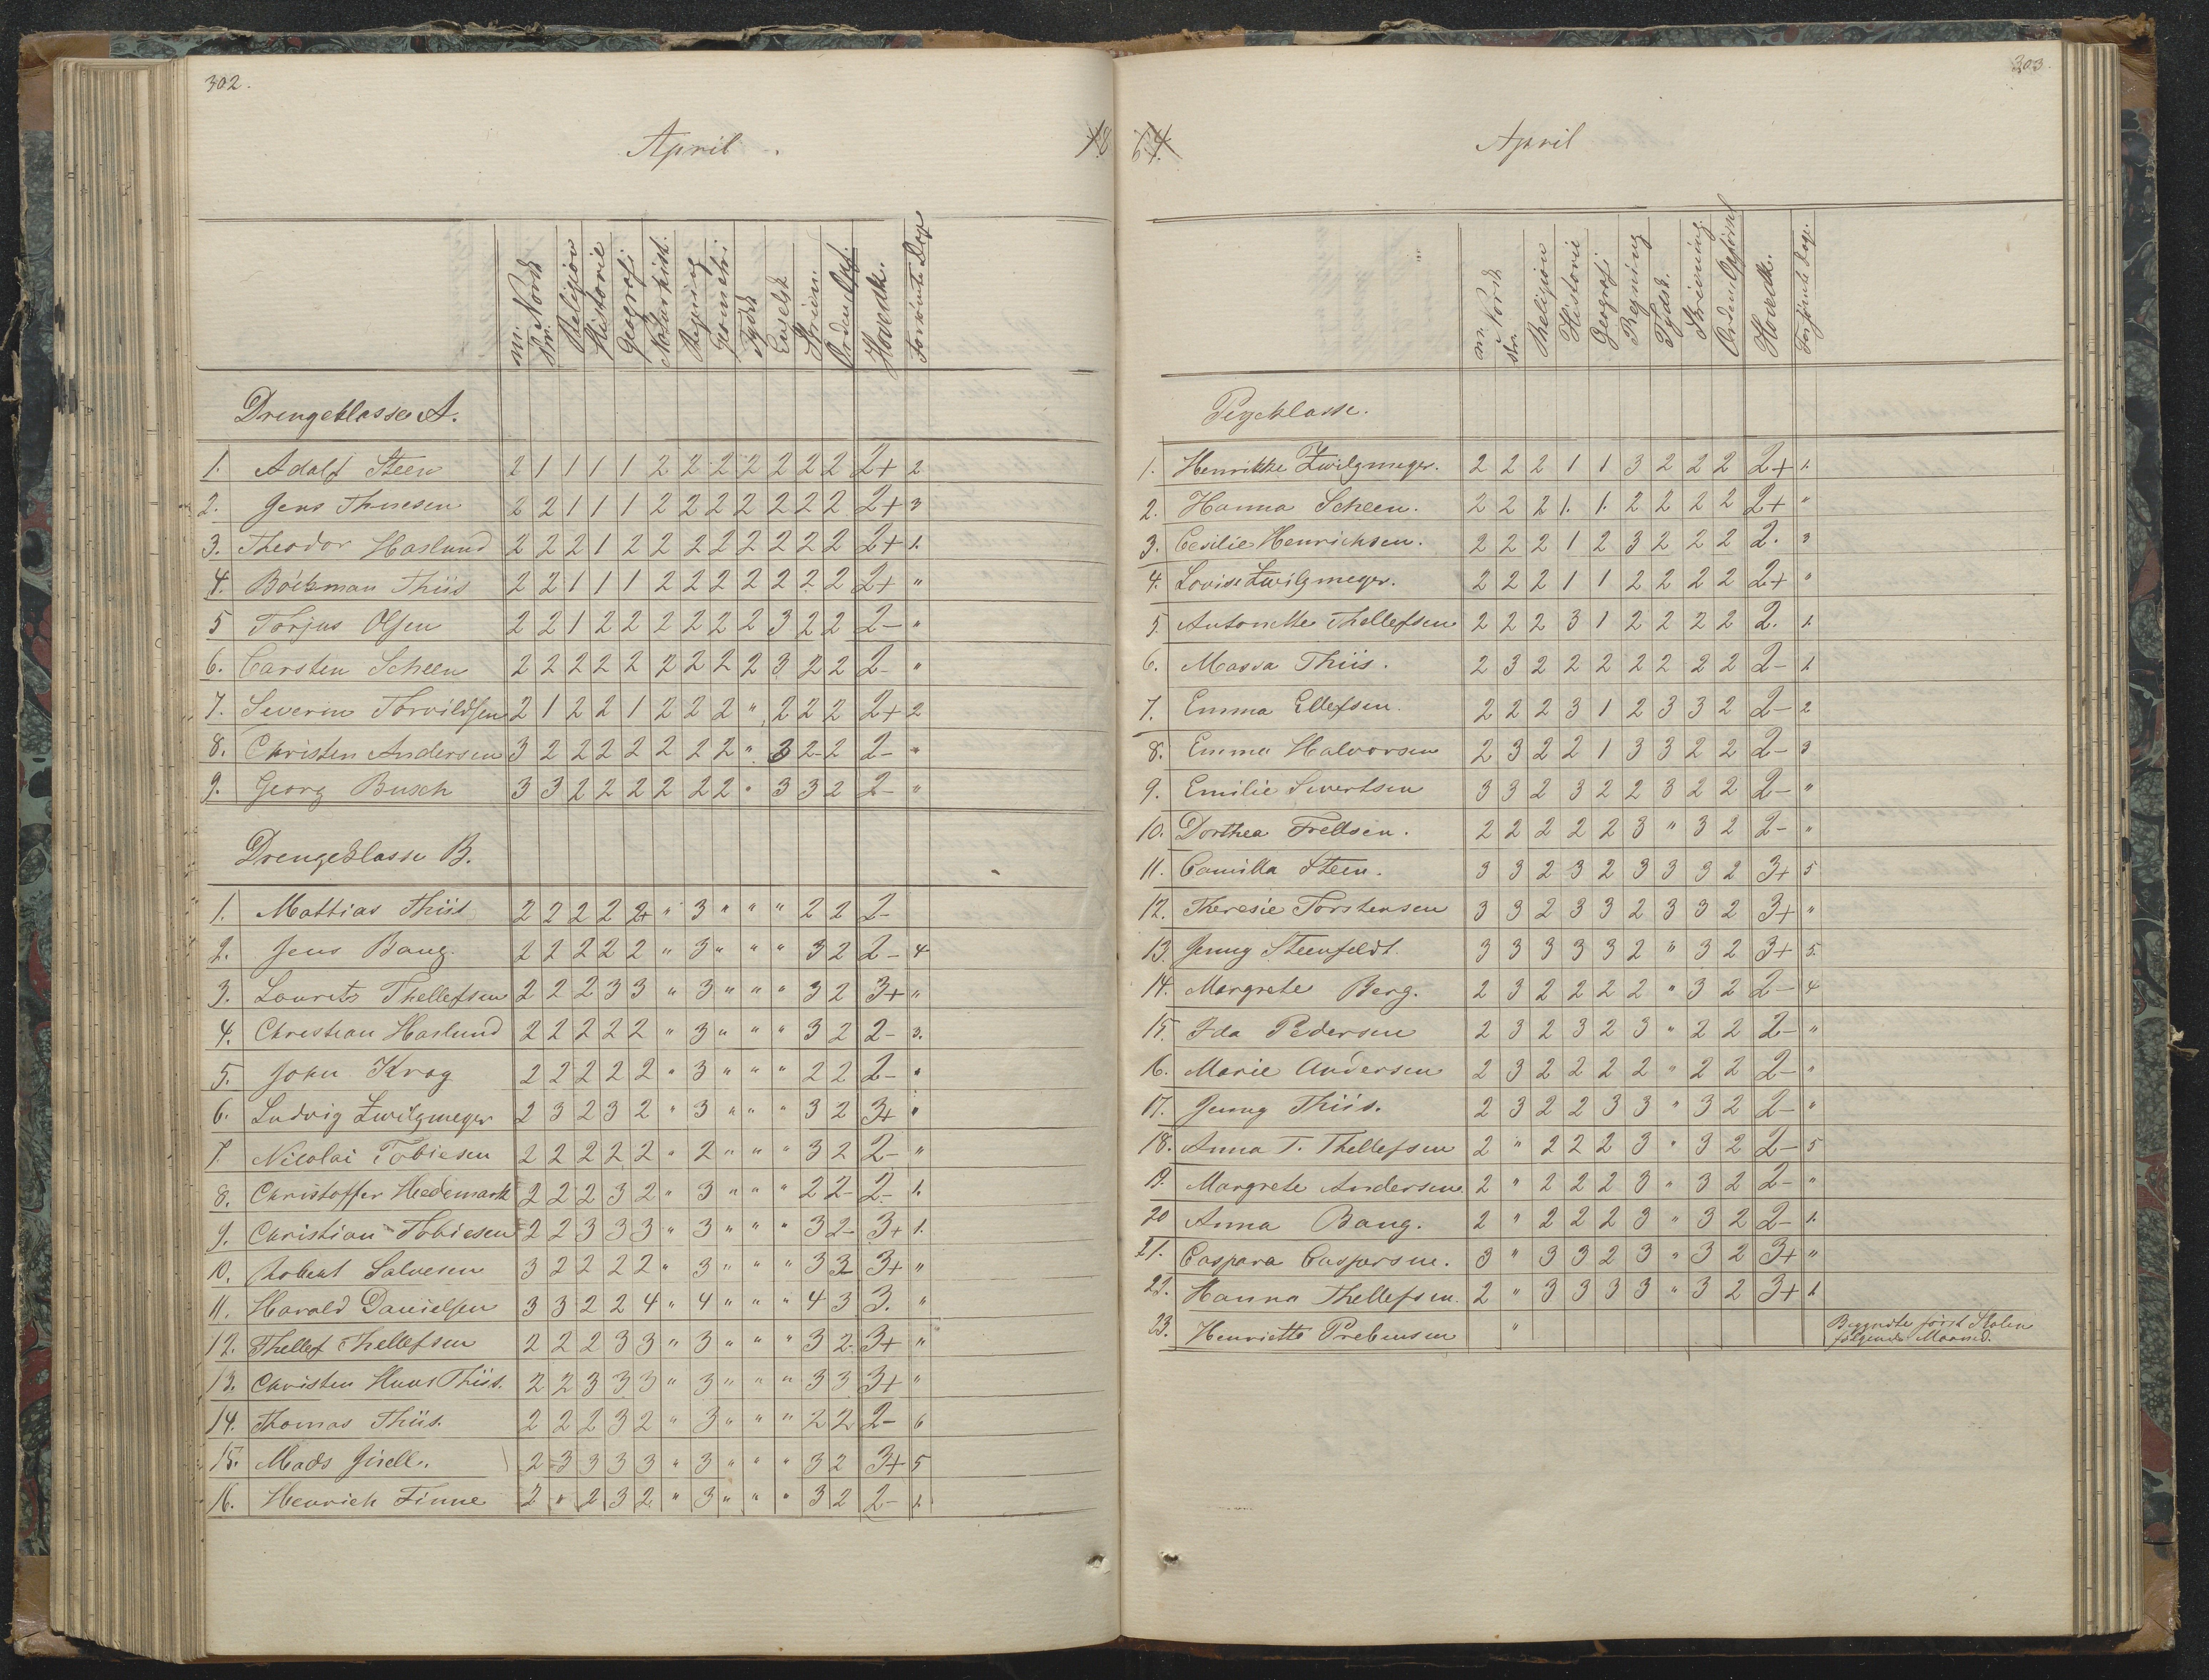 302.
April.
mr. Norsk
skr.
Religion
Historie
Geografi
Naturhist.
Regning
Geometri
Tydsk
Engelsk
Skrivn.
Orden Opf.
Hovedk.
Forsømte Dage
Drengeklasse A.
1. Adolf Steen 2 1 1 1 1 2 2 2 2 2 2 2 2+ 2
2. Jens Thuesen 2 2 1 1 1 2 2 2 2 2 2 2 2+ 3
3. Theodor Haslund 2 2 2 1 2 2 2 2 2 2 2 2 2+ 1.
4. Böckman Thiis 2 2 1 1 1 2 2 2 2 2 2 2 2+ "
5 Torjus Olsen 2 2 1 2 2 2 2 2 2 3 2 2 2- "
6. Carsten Scheen 2 2 2 2 2 2 2 2 2 3 2 2 2- "
7. Severin Torvildsen 2 1 2 2 1 2 2 2 " 2 2 2 2+ 2
8. Christen Andersen 3 2 2 2 2 2 2 2 " 3 2 2 2- "
9. Georg Busch 3 3 2 2 2 2 2 2 " 3 3 2 2- "
Drengeklasse B.
1. Mattias Thiis 2 2 2 2 2+ " 3 " " " 2 2 2-
2. Jens Bang. 2 2 2 2 2 " 3 " " " 3 2 2- 4
3. Lauritz Thellefsen 2 2 2 3 3 " 3 " " " 3 2 3+ "
4. Christian Haslund 2 2 2 2 2 " 3 " " " 3 2 2- 3.
5. John Krag 2 2 2 2 2 " 3 " " " 2 2 2- "
6. Ludvig Zwilgmeyer 2 3 2 3 2 " 3 " " " 3 2 3+ "
7. Nicolai Tobiesen 2 2 2 2 2 " 2 " " " 3 2 2- "
8. Christoffer Hedemark 2 2 2 3 2 " 3 " " " 2 2 2- 1.
9. Christian Tobiesen 2 2 3 3 3 " 3 " " " 3 2 3+ 1.
10. Robert Salvesen 3 2 2 2 2 " 3 " " " 3 2 3+ "
11. Harald Danielsen 3 3 2 2 4 " 4 " " " 4 3 3. "
12. Thellef Thellefsen 2 2 2 3 3 " 3 " " " 3 2 3+ "
13. Christen Huus Thiis. 2 2 3 3 3 " 3 " " " 3 3 3+ "
14. Thomas Thiis. 2 2 2 3 2 " 3 " " " 2 2 2- 6
15. Mads Gjsell. 2 3 3 3 3 " 3 " " " 3 2 3+ 5
16. Henrich Finne 2 " 2 3 2 " 3 " " " 3 2 2- 1.
303.
April
mr. Norsk
skr.
Religion
Historie
Geografi
Regning
Tydsk.
Skrivning
Orden Opførsel
Hovedk.
Forsømte Dage.
Pigeklasse.
1. Henrikke Zwilgmeyer. 2 2 2 1 1 3 2 2 2 2+ 1.
2. Hanna Scheen. 2 2 2 1. 1. 2 2 2 2 2+ "
3. Cesilie Henrichsen. 2 2 2 1 2 3 2 2 2 2. 3
4. Lovise Zwilgmeyer. 2 2 2 1 1 2 2 2 2 2+ "
5. Antonette Thellefsen 2 2 2 3 1 2 2 2 2 2. 1.
6. Massa Thiis. 2 3 2 2 2 2 2 2 2 2- 1
7. Emma Ellefsen. 2 2 2 3 1 2 3 3 2 2- 2
8. Emma Halvorsen 2 3 2 2 1 3 3 2 2 2- 3
9. Emilie Sivertsen 3 3 2 3 2 2 3 2 2 2- "
10. Dorthea Frellsen. 2 2 2 2 2 3 " 3 2 2- "
11. Camilla Steen. 3 3 2 3 2 3 3 3 2 3+ 5
12. Theresie Torstensen 3 3 2 3 3 2 3 3 2 3+ "
13. Jenny Steenfeldt. 3 3 3 3 3 2 " 3 2 3+ 5.
14. Margrete Berg. 2 3 2 2 2 2 " 3 2 2- 4
15. Ida Pedersen 2 3 2 3 2 3 " 2 2 2- "
16. Marie Andersen 2 3 2 2 2 2 " 2 2 2- "
17. Jenny Thiis. 2 3 2 2 3 3 " 3 2 2- "
18. Anna T. Thellefsen 2 " 2 2 2 3 " 3 2 2- 5
19. Margrete Andersen. 2 " 2 2 2 3 " 3 2 2- "
20 Anna Bang. 2 " 2 2 2 3 " 3 2 2- 1.
21. Caspara Caspersen. 3 " 3 3 2 3 " 3 2 3+ "
22. Hanna Thellefsen. 2 " 3 3 3 3 " 3 2 3+ 1
23. Henriette Prebensen "
Begyndte først Skolen
følgende Maaned.